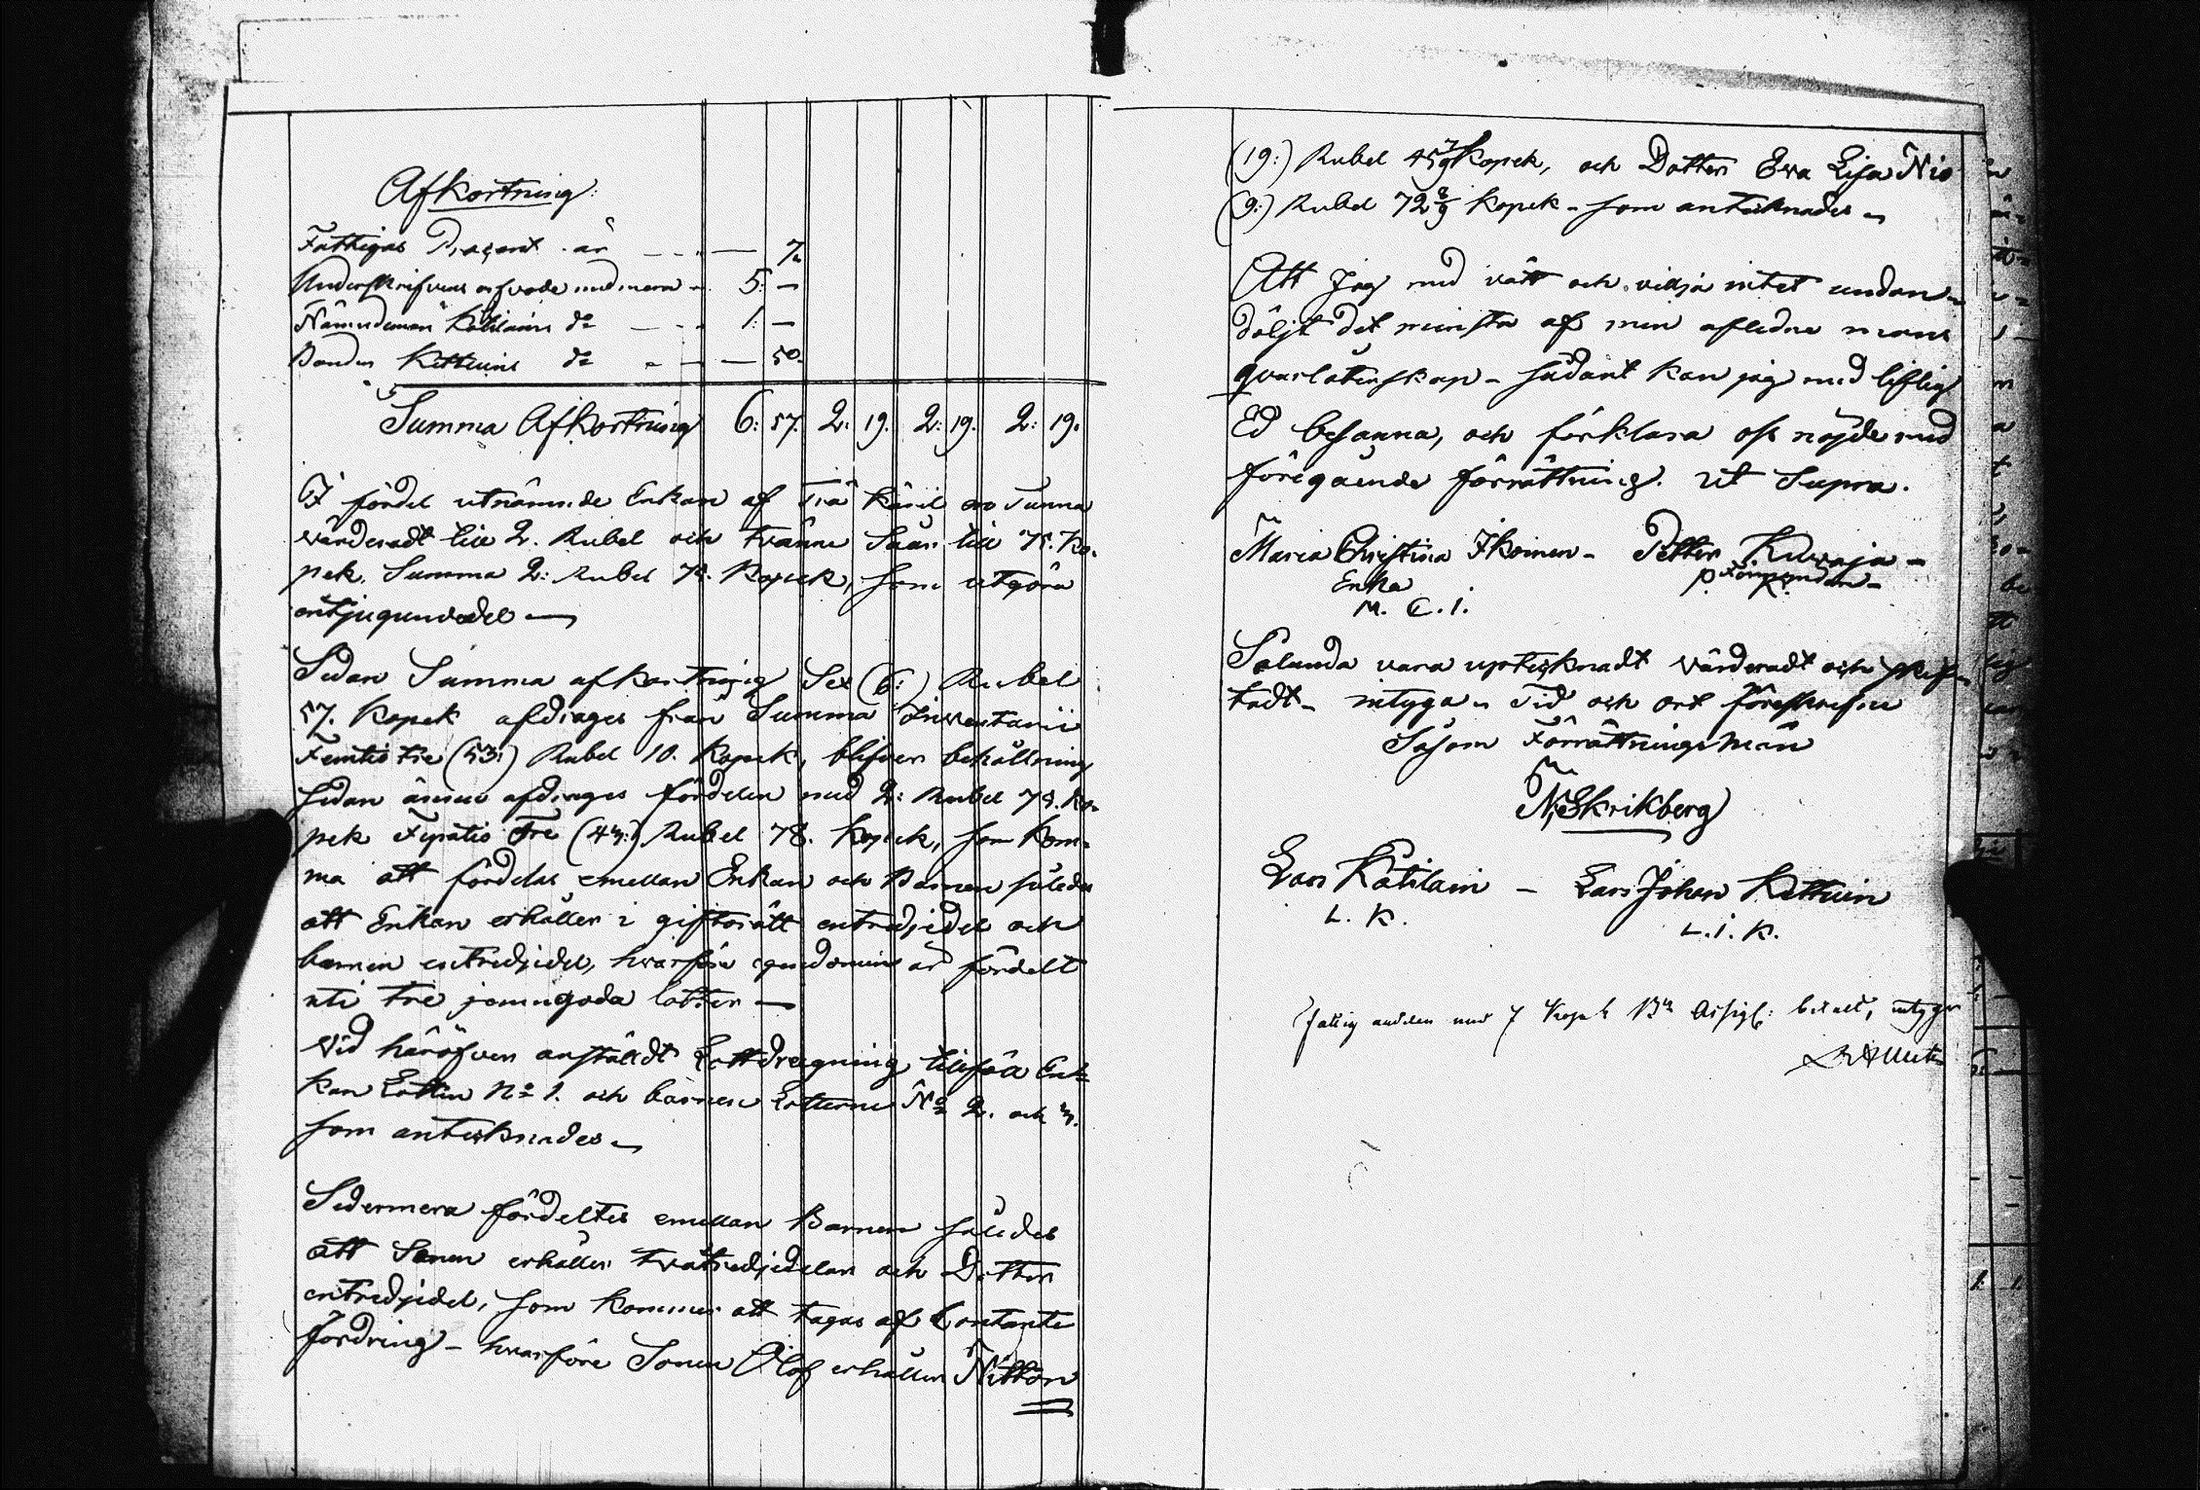 Afkortning:
Fattigas Procent är — 7.
Underskrifvens arfvode med mera — 5: —
Nämndeman Kätilains do — 1: —
Bonden Kettuins do — 50.
Summa Afkortning 6: 57. 2: 19. 2: 19. 2: 19.
I fördel utnämnde Enkan af Trä Käril en Tunna
värderadt till 2. Rubel och tvänne Såar till 75. Ko-
pek. Summa 2: Rubel 75. Kopek, som utgöra
entjugundedel —
Sedan Summa afkortning Sex (6:) Rubel
57. Kopek afdrages från Summa Inventarii
Femtio tre (53:) Rubel 10. Kopek, blifver behållning
sedan ännu afdrages fördelen med 2: Rubel 75. Ko-
pek Fyratio Tre (43:) Rubel 78. Kopek, som kom-
ma att fördelas emellan Enkan och Barnen således
att Enkan erhåller i giftorätt entredjedel och
barnen entredjedel, hvarföre egendomen är fördelt
uti tre jemngoda lotter —
Vid häröfver anstäldt Lottdragning tillföll En-
kan Lotten No 1. och barnen Lotterne No 2. och 3.
som antecknades —
Sedermera fördeltes emellan Barnen således
att Sonen erhåller tvåtredjedelar och Dottren
entredjedel, som kommer att tagas af Contante
fordring — hvarföre Sonen Olof erhåller Nitton
(19:) Rubel 45 7/9 Kopek, och Dotter Eva Lisa Nio
(9:) Rubel 72 8/9 Kopek — som antecknades —
Att Jag med vätt och vilja intet undan-
döljt det minsta af min aflidne mans
qvarlåtenskap — sådant kan jag med liflig
Ed besanna, och förklara oss nöjde med
föregående förrättning. Ut Supra.
Maria Christina Ikoinen — Petter Kuvaja —
Enka
M. C. I. P. K.
Sålunda vara uptecknadt värderadt och skif-
tadt — intyga — Tid och ort föreskrefne
Såsom Förrättnings Män
N. Skrikberg
Lars Kätilain — Lars Johan Kettuin
L. K. L. I. K.
Fattig andelen med 7 Kopek Bco Assign: betalt, intygar